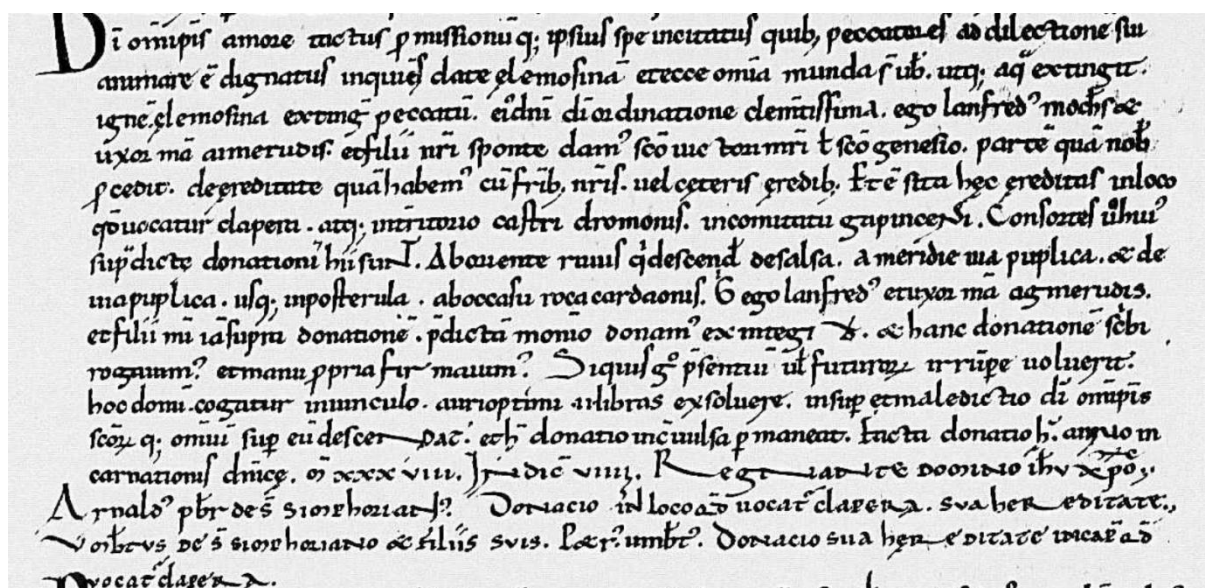 Di omīpīs amore tactus ꝓmissionūq; ipsius spe incitatus quib; peccatores ad dilectionē sui
animare ē dignatus inquiēs date ęlemosinā et ecce omīa munda s̄ ub̄. utq; aq̄ extingit
ignē. ęlemosina extinḡ peccatū. dn̄i di ordinatione clemtissima. ego lanfred⁹ &
uxor mā aimerudis. et filii nr̄i sponte dam⁹ sc̄o uictori mr̄i ł sc̄o genesio. partē quā nob̄
ꝓcedit. de ęreditate quā habem⁹ cū fr̄ib; nr̄is. uel cęteris ęredib; Et ē sita hęc ęreditas in loco
q̄o uocatur clapera. atq; in territorio castri dromonis. in comitatu gapincensi. Consortes ū hui⁹
sup̄dictę donationi hii sunt. Ab oriente riuus q̄ descend̄ de salsa. a meridie uia puplica. & de
uia puplica. usq; in posterula. ab occasu roca cardaonis. ego lanfred⁹ et uxor mā agmerudis.
et filii mī iāsupra donationē. p̄dictā monio donam⁹ ex integ & hanc donationē sc̄bi
rogauim⁹ et manu ꝓpria firmauim⁹. Siquis g° p̄sentiū ut̄ futuroꝝ irrūpe uoluerit.
hoc domī. cogatur in uinculo. auri optimi libras exsoluere. insup et maledictio di omīpis
sc̄oꝝ q; omiū sup eū descendat. et h̄ donatio incuulsa ꝑmaneat. Facta donatio h̄. anno in
carnationis dn̄icę. m̄ xxx viii. Indic̄ viiii. Regnante domino ih̄u xp̄o.
Arnald⁹ pb̄r de s̄ simphorian⁹. Donacio in loco q̄d uocat̄ clapera. sua hereditate.
de s̄ simphoriano & filiis suis. umb̄t⁹. Donacio sua hęreditate
uocat̄ clapera.